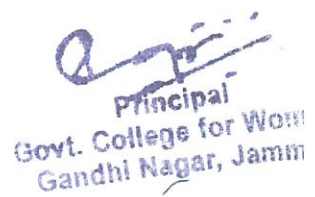 Principal
Govt. College for Wom
Gandhi Nagar, Jamm